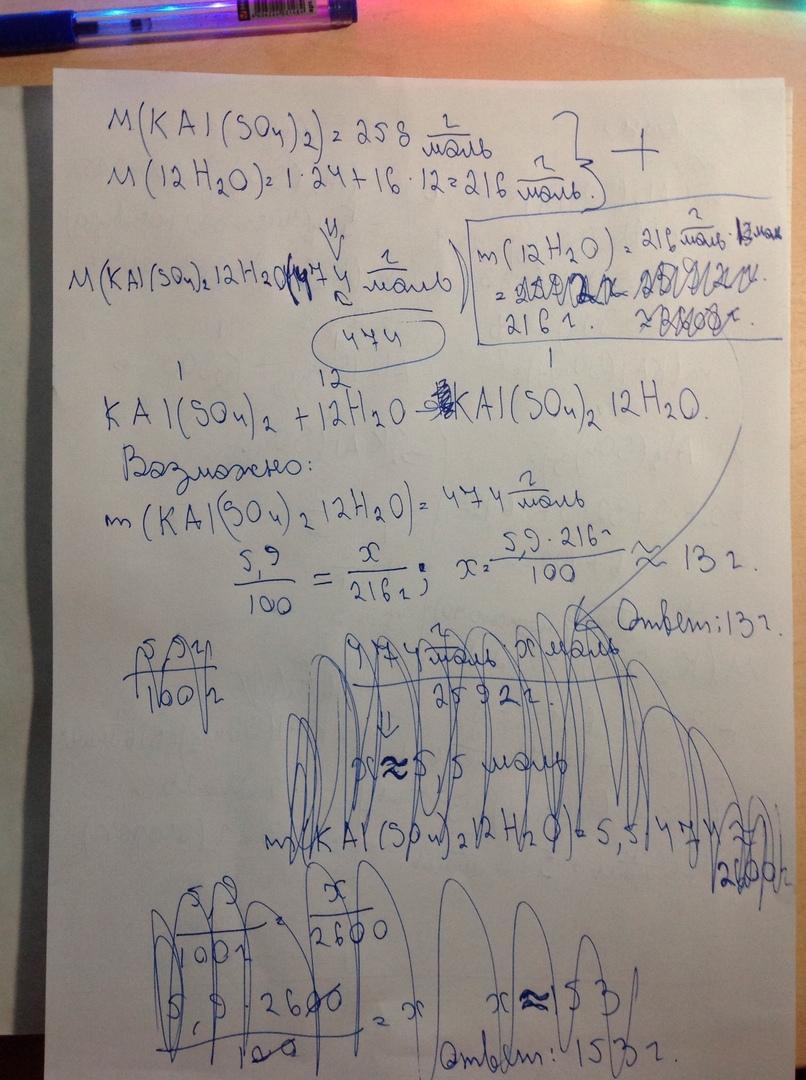 M(KAl(SO4)2)=258 г/моль
M(12H2O)=1·24+16·12=216 г/моль.
+
m(12H2O)=216 г/моль·1 мол
=
216 г.
4
M(KAl(SO4)2 12H2O) 474 г/моль)
474
1 12 1
KAl(SO4)2 + 12H2O → KAl(SO4)2 12H2O.
Возможно:
m(KAl(SO4)2 12H2O)=474 г/моль
5,9/100 = x/216г; x=5,9·216г/100 ≈ 13 г.
Ответ: 13 г.
5,9г/100г
474 г/моль x моль/2592г.
x≈5,5 моль
m(KAl(SO4)2 12H2O)=5,5·474
2600г
5,9/100г = x/2600
5,9·2600/100 = x x≈153
Ответ: 153 г.